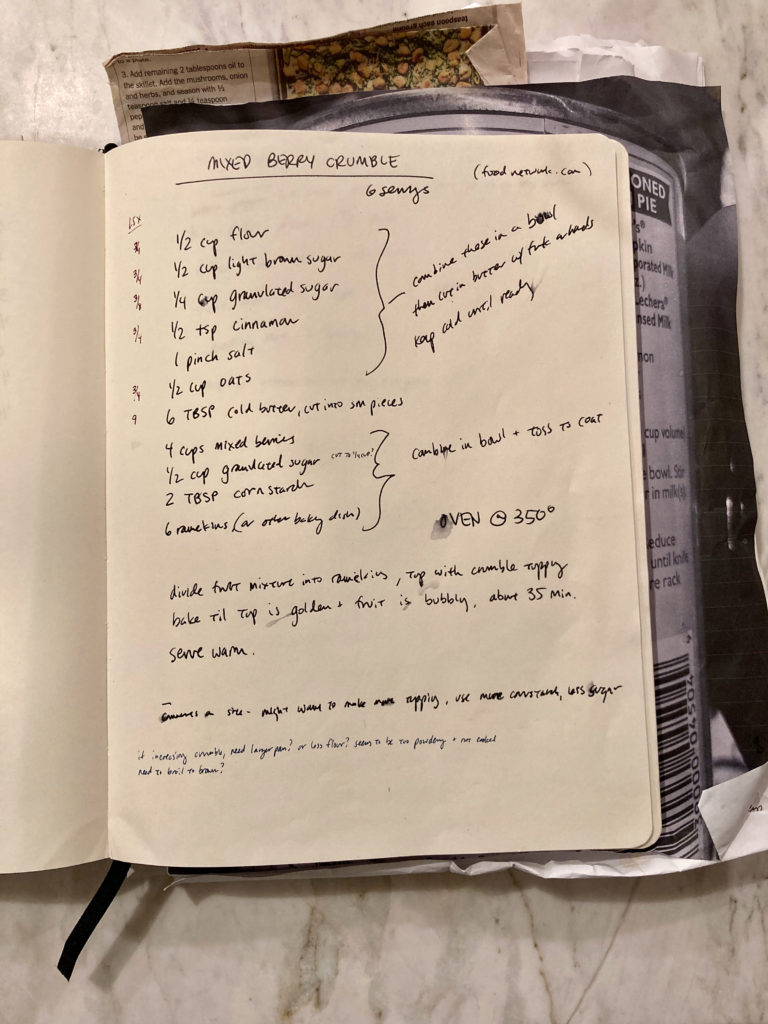 teaspoon each ground
3. Add remaining 2 tablespoons oil to
the skillet. Add the mushrooms, onion
and herbs, and season with ½
teaspoon salt and ¼ teaspoon
MIXED BERRY CRUMBLE
(foodnetwork.com)
6 servings
1.5x
3/4 1/2 cup flour
3/4 1/2 cup light brown sugar
3/8 1/4 cup granulated sugar
3/4 1/2 tsp cinnamon
1 pinch salt
3/4 1/2 cup oats
9 6 TBSP cold butter, cut into sm pieces
combine these in a bowl
then cut in butter w/ fork or hands
keep cold until ready
4 cups mixed berries
1/2 cup granulated sugar cut to 1/4 cup?
2 TBSP cornstarch
6 ramekins (or other baking dish)
combine in bowl + toss to coat
OVEN @ 350°
divide fruit mixture into ramekins, top with crumble topping
bake til top is golden + fruit is bubbly, about 35 min.
serve warm.
might want to make more topping, use more cornstarch, less sugar
if increasing crumble, need larger pan? or less flour? seems to be too powdery + not cooked
need to broil to brown?
ONED
PIE
pkin
porated Milk
z.)
Lechera®
nsed Milk
mon
cup volume
bowl. Stir
r in milk(s)
educe
until knife
re rack